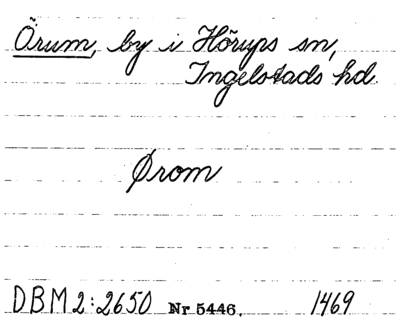 Örum, by i Hörups sn,
Ingelstads hd
Ørom
DBM 2:2650 Nr 5446. 1469